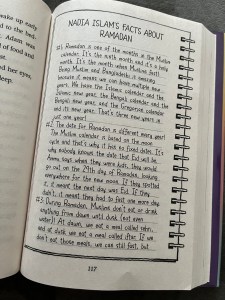 wake up early
Adam was
of food and
her eyes,
deep.
NADIA ISLAM'S FACTS ABOUT
RAMADAN
#1 Ramadan is one of the months in the Muslim
calendar. It's the ninth month, and it's a holy
month. It's the month when Muslims fast!
Being Muslim and Bangladeshi is amazing
because it means we can have multiple new
years. We have the Islamic calendar and the
Islamic new year, the Bengali calendar and the
Bengali new year, and the Gregorian calendar
and its new year. That's three new years in
just one year!
#2 The date for Ramadan is different every year!
The Muslim calendar is based on the moon
cycle and that's why it has no fixed dates. It's
why nobody knows the date that Eid will be.
Amma says when they were kids, they would
go out on the 29th day of Ramadan, looking
everywhere for the new moon. If they spotted
it, it meant the next day was Eid. If they
didn't, it meant they had to fast one more day.
#3 During Ramadan, Muslims don't eat or drink
anything from dawn until dusk (not even
water)! At dawn, we eat a meal called
and at dusk we eat a meal called iftar. If we
don't eat those meals, we can still fast, but
117